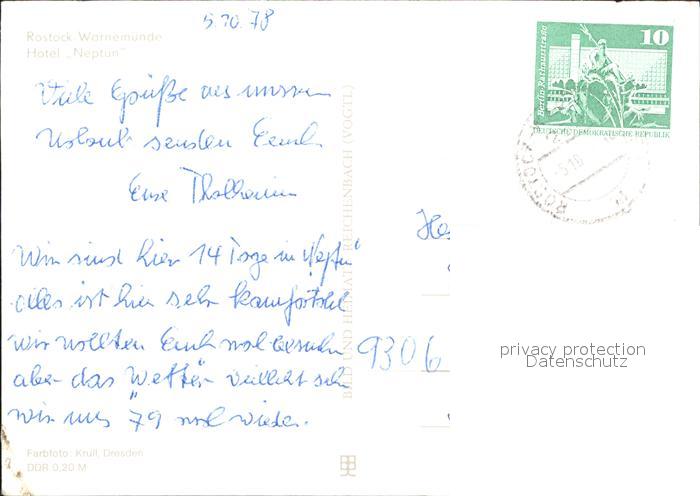 5.10.78
Rostock Warnemünde
Hotel „Neptun"
Viele Grüße aus unserem
Urlaub senden Euch
Eure Thalheimer
Wir sind hier 14 Tage in „Neptun"
alles ist hier sehr komfortabel
wir wollten Euch mal besuchen
aber das Wetter vielleicht sehn
wir uns 79 mal wieder.
9306
Farbfoto: Krull, Dresden
DDR 0,20 M
BILD UND HEIMAT REICHENBACH (VOGTL)
10
Berlin, Rathausstraße
DEUTSCHE DEMOKRATISCHE REPUBLIK
privacy protection
Datenschutz